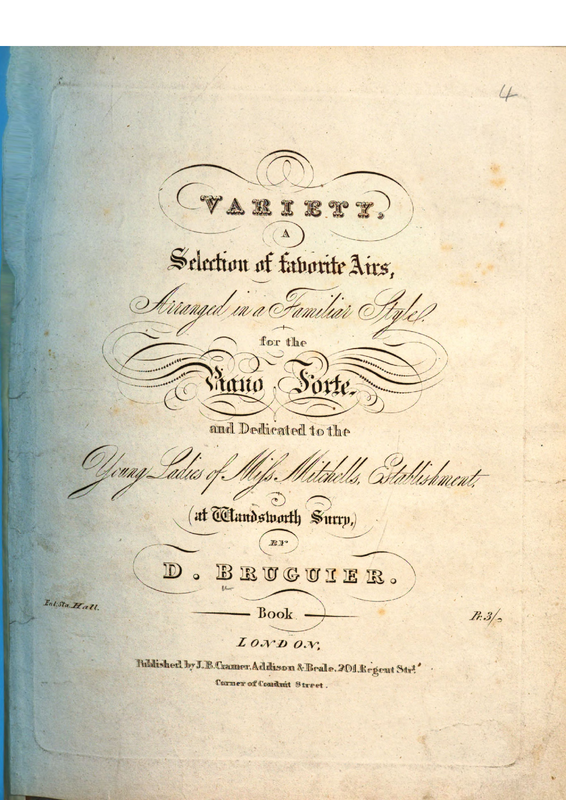 4
VARIETY,
A
Selection of favorite Airs,
Arranged in a Familiar Style.
for the
Piano Forte.
and Dedicated to the
Young Ladies of Miſs Mitchells, Establishment,
(at Wandsworth Surry,)
BY
D. BRUGUIER.
Book
Ent. Sta. Hall.
Pr. 3/-
LONDON,
Published by J. B. Cramer, Addison & Beale. 201. Regent Strt.
Corner of Conduit Street.